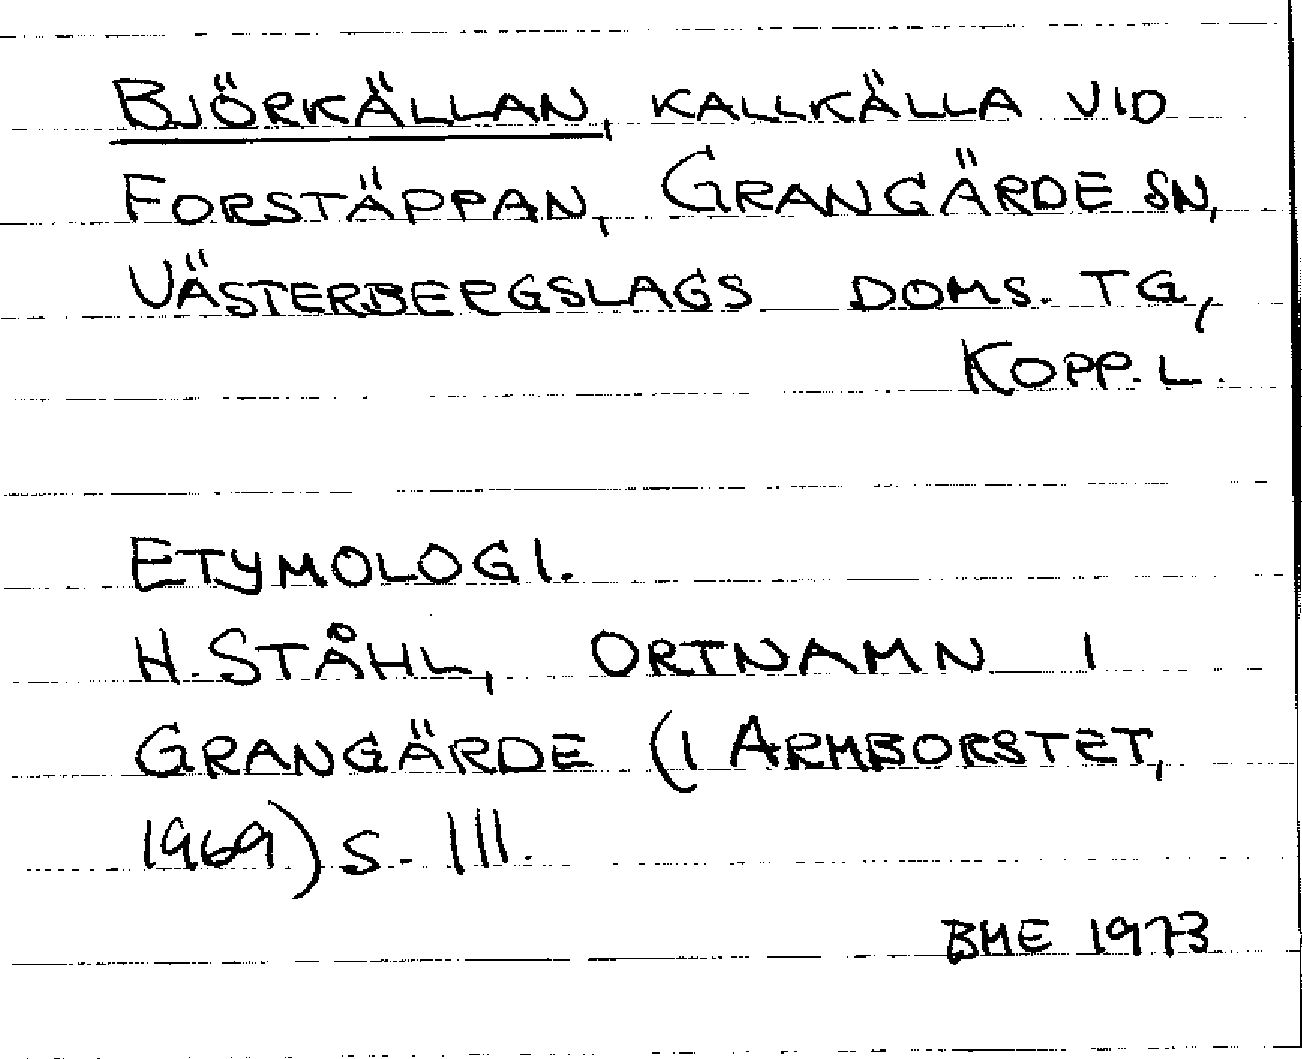 BJÖRKÄLLAN, KALLKÄLLA VID
FORSTÄPPAN, GRANGÄRDE SN,
VÄSTERBERGSLAGS DOMS. TG,
KOPP. L.
ETYMOLOGI.
H. STÅHL, ORTNAMN I
GRANGÄRDE (I ARMBORSTET,
1969) S. 111.
BME 1973